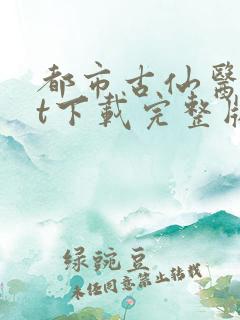 都市古仙醫
t下載完整版
绿豌豆
未经同意禁止转载